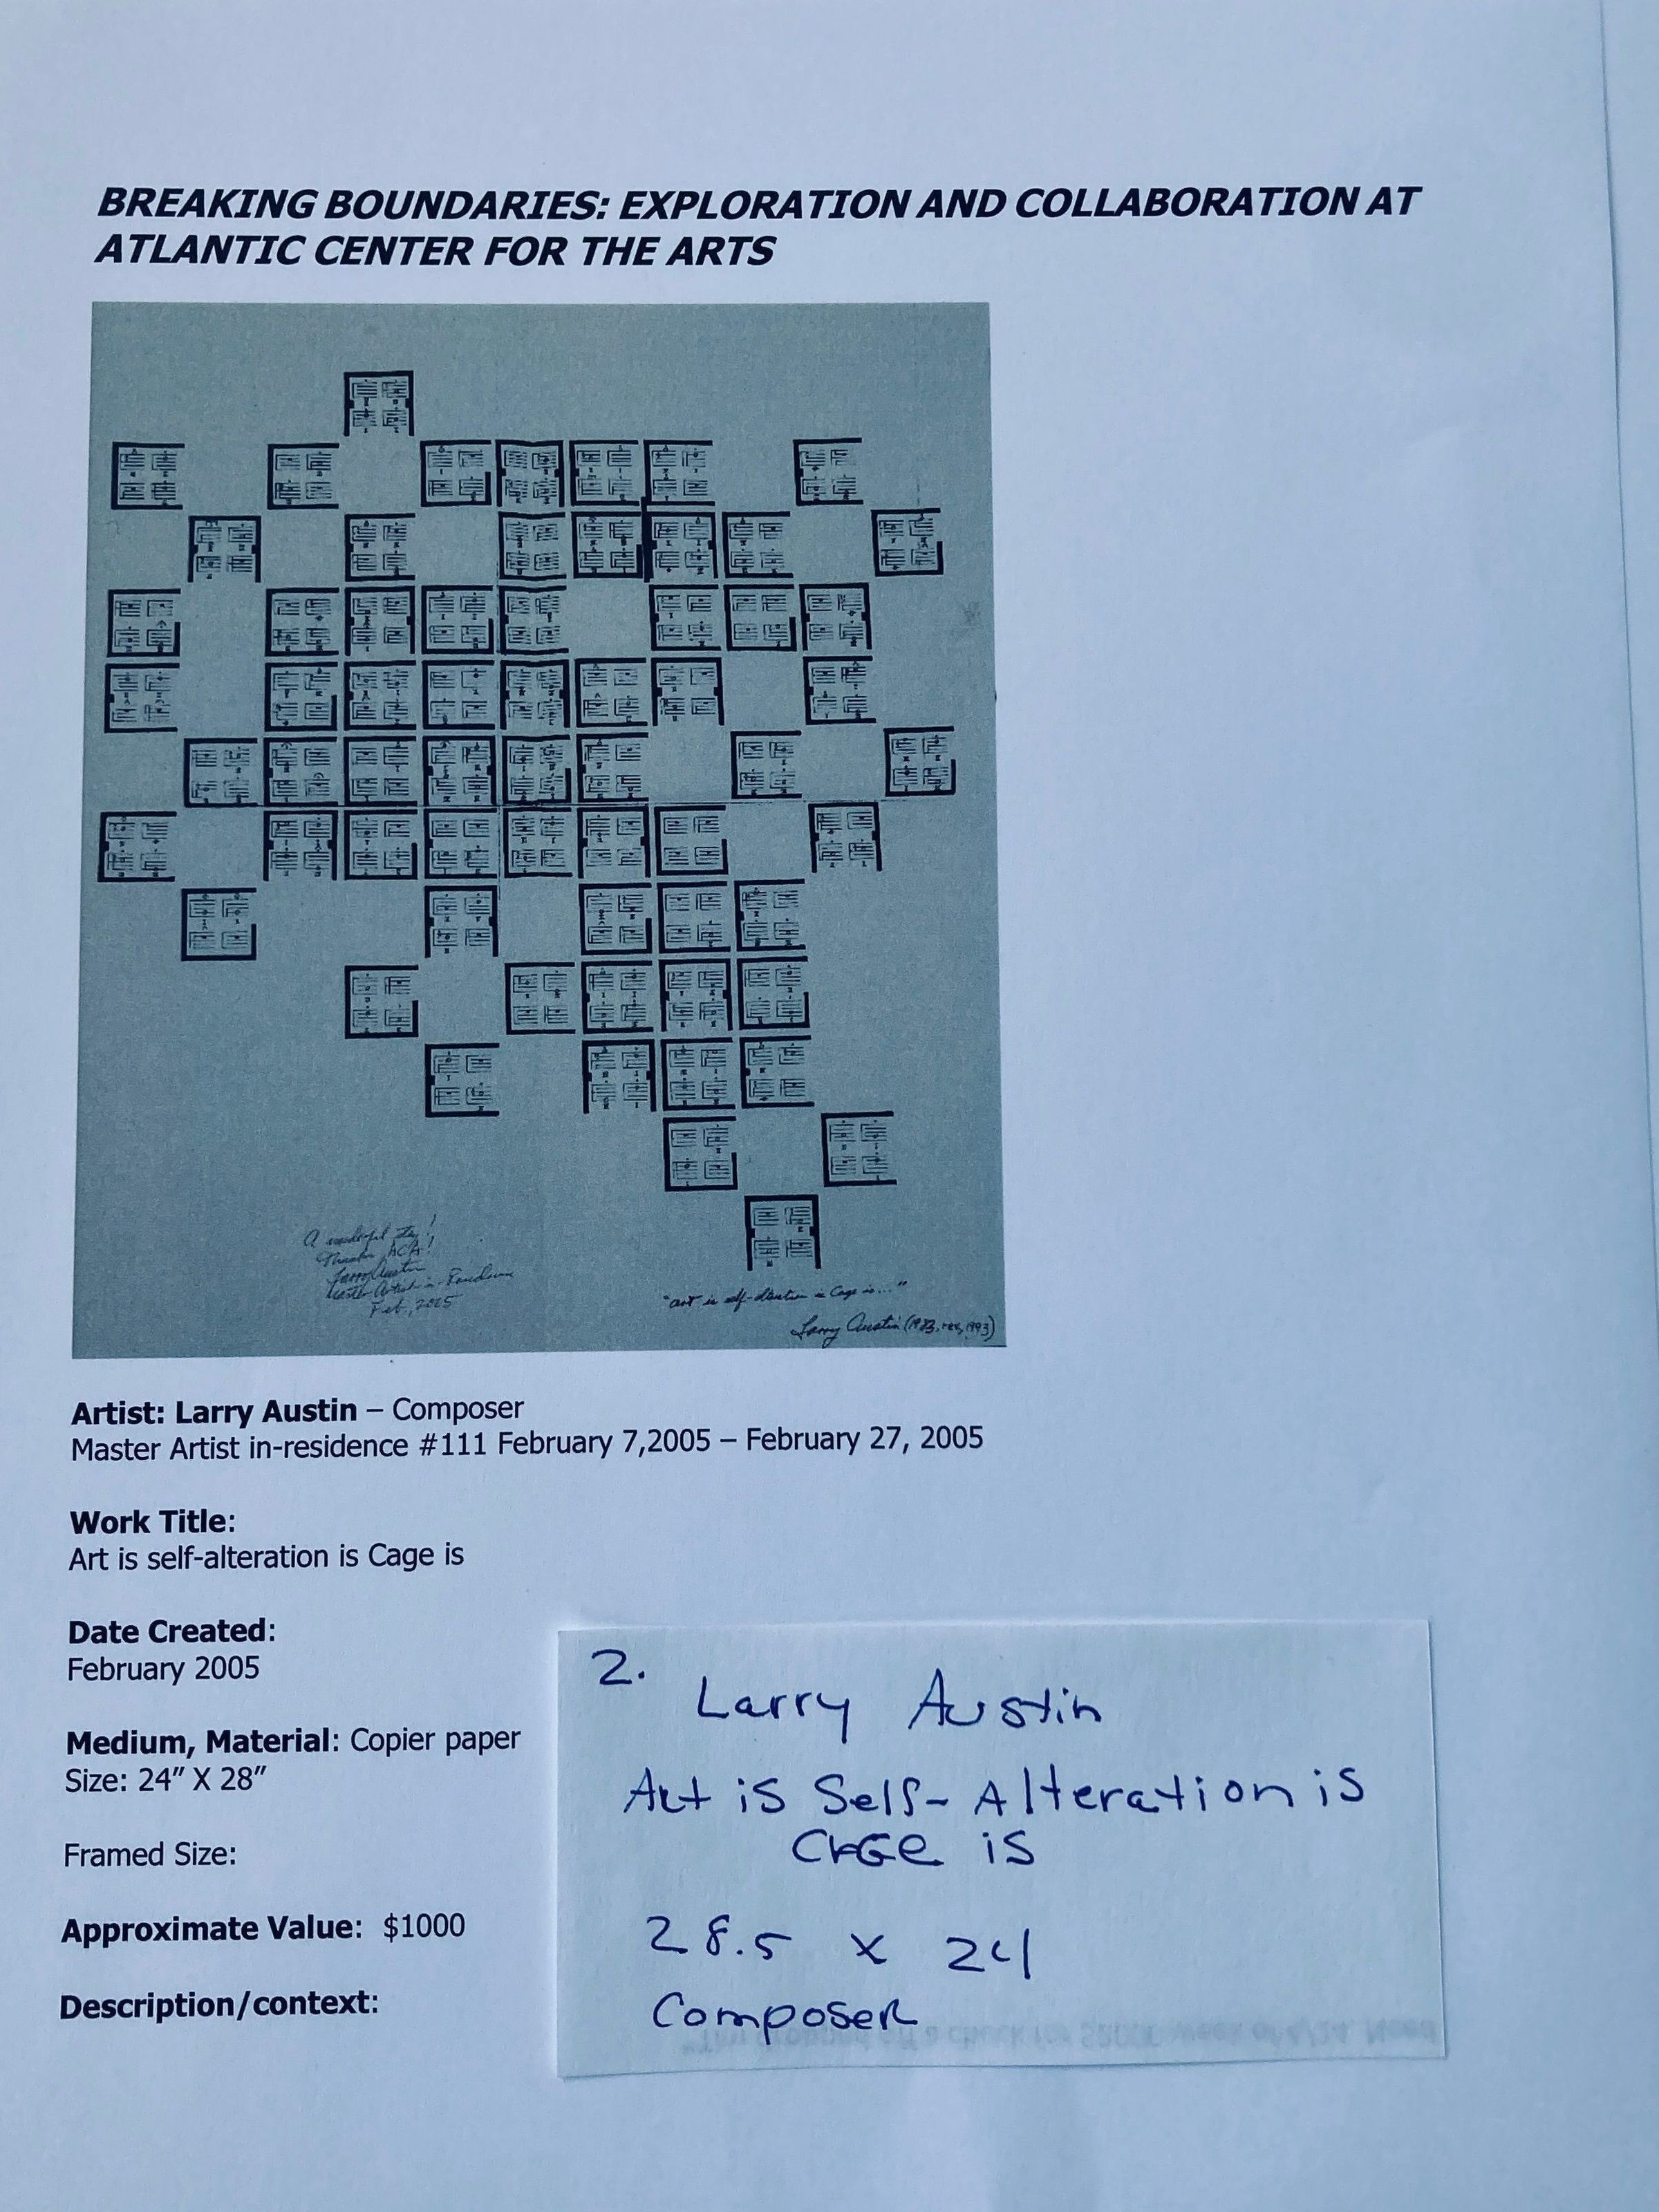 BREAKING BOUNDARIES: EXPLORATION AND COLLABORATION AT
ATLANTIC CENTER FOR THE ARTS
A wonderful
Thanks, ACA!
Larry Austin
Master Artist-in-Residence
Feb., 2005
"art is self-alteration is Cage is..."
Larry Austin (1983, rev, 1993)
Artist: Larry Austin – Composer
Master Artist in-residence #111 February 7,2005 – February 27, 2005
Work Title:
Art is self-alteration is Cage is
Date Created:
February 2005
Medium, Material: Copier paper
Size: 24" X 28"
Framed Size:
Approximate Value: $1000
Description/context:
2.
Larry Austin
Art is Self-Alteration is
CAGe is
28.5 x 24
Composer